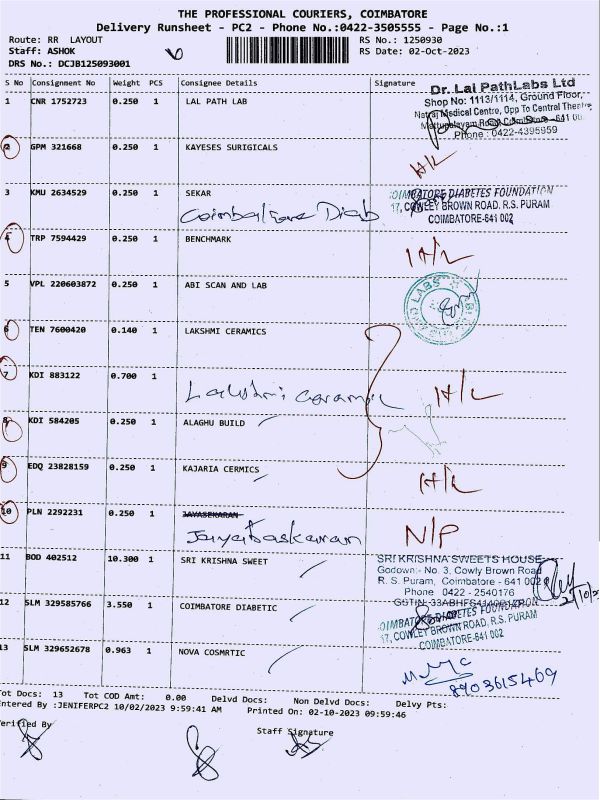 THE PROFESSIONAL COURIERS, COIMBATORE
Delivery Runsheet - PC2 - Phone No.:0422-3505555 - Page No.:1
Route: RR LAYOUT RS No.: 1250930
Staff: ASHOK RS Date: 02-Oct-2023
DRS No.: DCJB125093001
S No Consignment No Weight PCS Consignee Details Signature
1 CNR 1752723 0.250 1 LAL PATH LAB
Dr. Lal PathLabs Ltd
Shop No: 1113/1114, Ground Floor,
Medical Centre, Opp To Central Theatre,
Mettupalayam Road, Coimbatore - 641 00
Phone: 0422-4395959
2 GPM 321668 0.250 1 KAYESES SURIGICALS H/L
3 KMU 2634529 0.250 1 SEKAR
COIMBATORE DIABETES FOUNDATION
17, COWLEY BROWN ROAD, R.S. PURAM
COIMBATORE-641 002
4 TRP 7594429 0.250 1 BENCHMARK H/L
5 VPL 220603872 0.250 1 ABI SCAN AND LAB
LABS
6 TEN 7600420 0.140 1 LAKSHMI CERAMICS
7 KDI 883122 0.700 1 H/L
Lakshmi
8 KDI 584205 0.250 1 ALAGHU BUILD
9 EDQ 23828159 0.250 1 KAJARIA CERMICS H/L
10 PLN 2292231 0.250 1 JAYASEKARAN N/P
Jayabaskaran
11 BOD 402512 10.300 1 SRI KRISHNA SWEET
SRI KRISHNA SWEETS HOUSE
Godown:- No. 3, Cowly Brown Road
R. S. Puram, Coimbatore - 641 002
Phone 0422 - 2540176
12 SLM 329585766 3.550 1 COIMBATORE DIABETIC
COIMBATORE DIABETES FOUNDATION
17, COWLEY BROWN ROAD, R.S. PURAM
COIMBATORE-641 002
13 SLM 329652678 0.963 1 NOVA COSMRTIC
8903615469
Tot Docs: 13 Tot COD Amt: 0.00 Delvd Docs: Non Delvd Docs: Delvy Pts:
Entered By :JENIFERPC2 10/02/2023 9:59:41 AM Printed On: 02-10-2023 09:59:46
Verified By Staff Signature